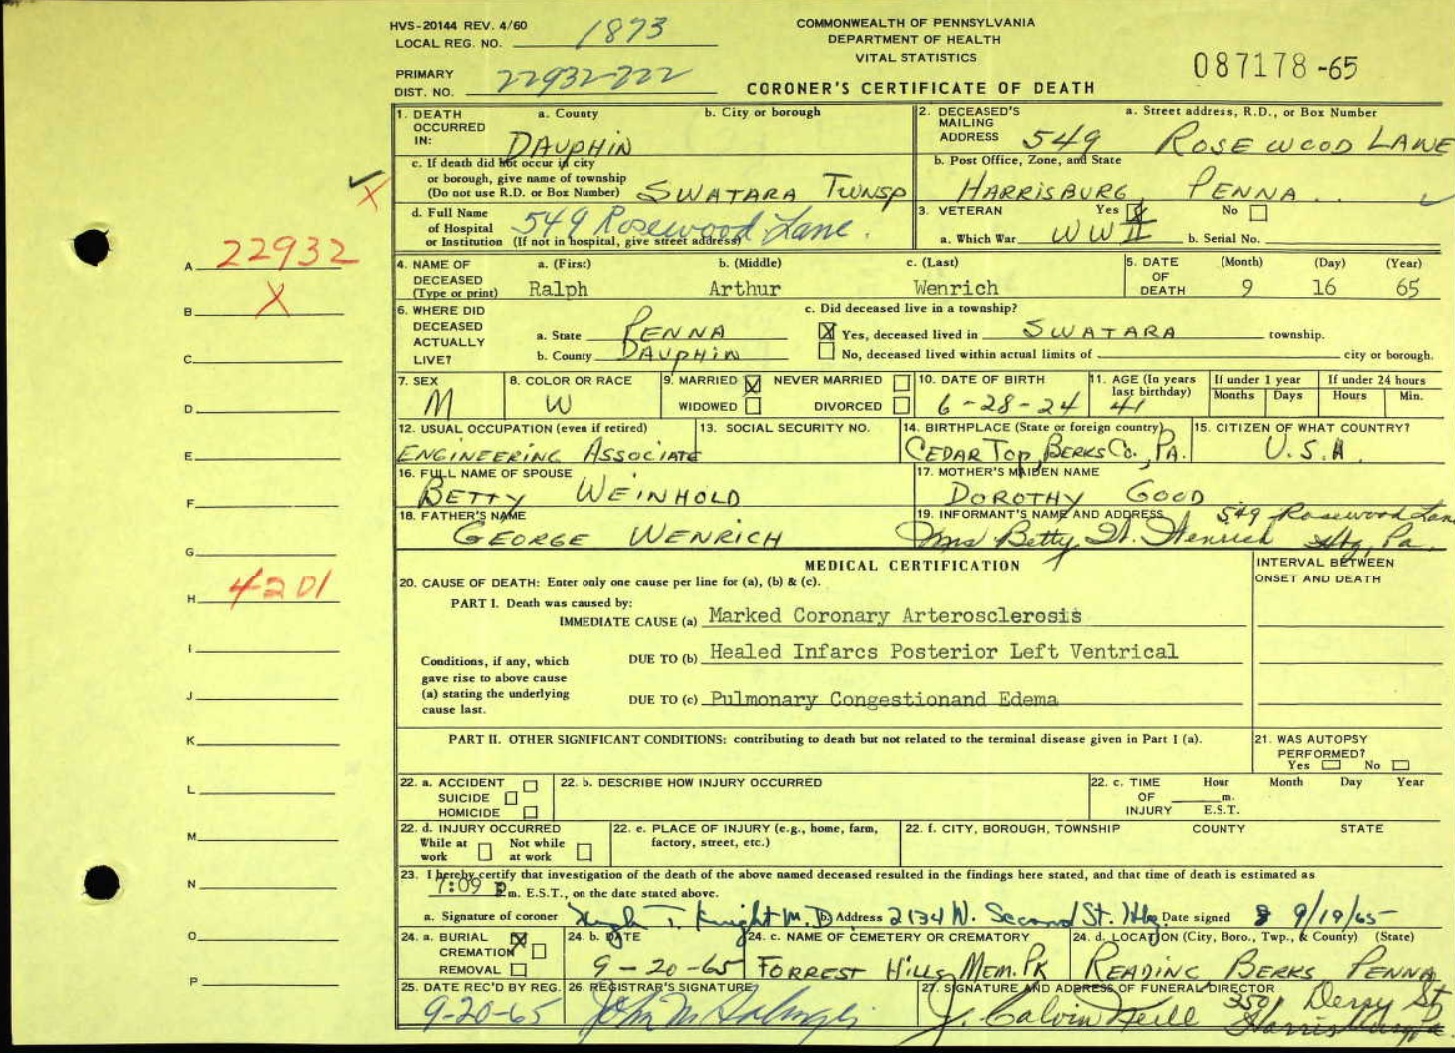 HVS-20144 REV. 4/60
LOCAL REG. NO. 1873
COMMONWEALTH OF PENNSYLVANIA
DEPARTMENT OF HEALTH
VITAL STATISTICS
087178-65
PRIMARY
DIST. NO. 22932-222
CORONER'S CERTIFICATE OF DEATH
1. DEATH OCCURRED IN: a. County b. City or borough
DAUPHIN
c. If death did not occur in city
or borough, give name of township
(Do not use R.D. or Box Number) SWATARA TWNSP
d. Full Name
of Hospital 549 Rosewood Lane.
or Institution (If not in hospital, give street address)
2. DECEASED'S MAILING ADDRESS a. Street address, R.D., or Box Number
549 ROSEWOOD LANE
b. Post Office, Zone, and State
HARRISBURG PENNA..
3. VETERAN Yes No
a. Which War WW II b. Serial No.
4. NAME OF DECEASED (Type or print) a. (First) b. (Middle) c. (Last)
Ralph Arthur Wenrich
5. DATE OF DEATH (Month) (Day) (Year)
9 16 65
6. WHERE DID DECEASED ACTUALLY LIVE?
a. State PENNA
b. County DAUPHIN
c. Did deceased live in a township?
X Yes, deceased lived in SWATARA township.
No, deceased lived within actual limits of city or borough.
7. SEX
M
8. COLOR OR RACE
W
9. MARRIED X NEVER MARRIED
WIDOWED DIVORCED
10. DATE OF BIRTH
6-28-24
11. AGE (In years last birthday)
41
If under 1 year
Months Days
If under 24 hours
Hours Min.
12. USUAL OCCUPATION (even if retired)
ENGINEERING ASSOCIATE
13. SOCIAL SECURITY NO.
14. BIRTHPLACE (State or foreign country)
CEDAR TOP, BERKS CO., PA.
15. CITIZEN OF WHAT COUNTRY?
U.S.A
16. FULL NAME OF SPOUSE
BETTY WEINHOLD
17. MOTHER'S MAIDEN NAME
DOROTHY GOOD
18. FATHER'S NAME
GEORGE WENRICH
19. INFORMANT'S NAME AND ADDRESS 549 Rosewood Lane
Mrs Betty Wenrich Hbg, Pa.
MEDICAL CERTIFICATION
INTERVAL BETWEEN
ONSET AND DEATH
20. CAUSE OF DEATH: Enter only one cause per line for (a), (b) & (c).
PART I. Death was caused by:
IMMEDIATE CAUSE (a) Marked Coronary Arterosclerosis
DUE TO (b) Healed Infarcs Posterior Left Ventrical
Conditions, if any, which
gave rise to above cause
(a) stating the underlying
cause last.
DUE TO (c) Pulmonary Congestionand Edema
PART II. OTHER SIGNIFICANT CONDITIONS: contributing to death but not related to the terminal disease given in Part I (a).
21. WAS AUTOPSY
PERFORMED?
Yes No
22. a. ACCIDENT
SUICIDE
HOMICIDE
22. b. DESCRIBE HOW INJURY OCCURRED
22. c. TIME OF INJURY Hour Month Day Year
m.
E.S.T.
22. d. INJURY OCCURRED
While at work Not while at work
22. e. PLACE OF INJURY (e.g., home, farm,
factory, street, etc.)
22. f. CITY, BOROUGH, TOWNSHIP COUNTY STATE
23. I hereby certify that investigation of the death of the above named deceased resulted in the findings here stated, and that time of death is estimated as
7:09 P m. E.S.T., on the date stated above.
a. Signature of coroner Hugh T. Knight M.D. b. Address 2134 N. Second St. Hbg. Date signed 9/19/65
24. a. BURIAL X
CREMATION
REMOVAL
24. b. DATE
9-20-65
24. c. NAME OF CEMETERY OR CREMATORY
FORREST HILLS MEM. PK
24. d. LOCATION (City, Boro., Twp., & County) (State)
READING BERKS PENNA
25. DATE REC'D BY REG.
9-20-65
26. REGISTRAR'S SIGNATURE
John M
27. SIGNATURE AND ADDRESS OF FUNERAL DIRECTOR
J. Calvin Neill 3501 Derry St
Harrisburg Pa
A 22932
B X
C
D
E
F
G
H 4201
I
J
K
L
M
N
O
P